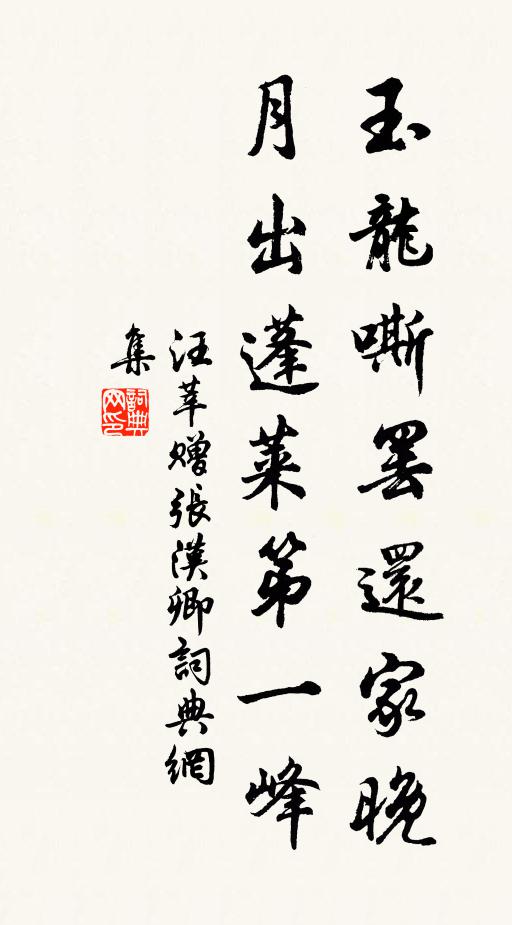 玉龍嘶罷還家晚
月出蓬萊第一峰
汪莘贈張漢卿詞典網
集
詞典
网印